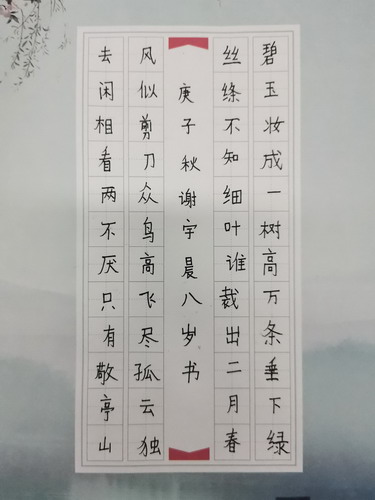 碧玉妆成一树高万条垂下绿
丝绦不知细叶谁裁出二月春
庚子秋谢宇晨八岁书
风似剪刀众鸟高飞尽孤云独
去闲相看两不厌只有敬亭山